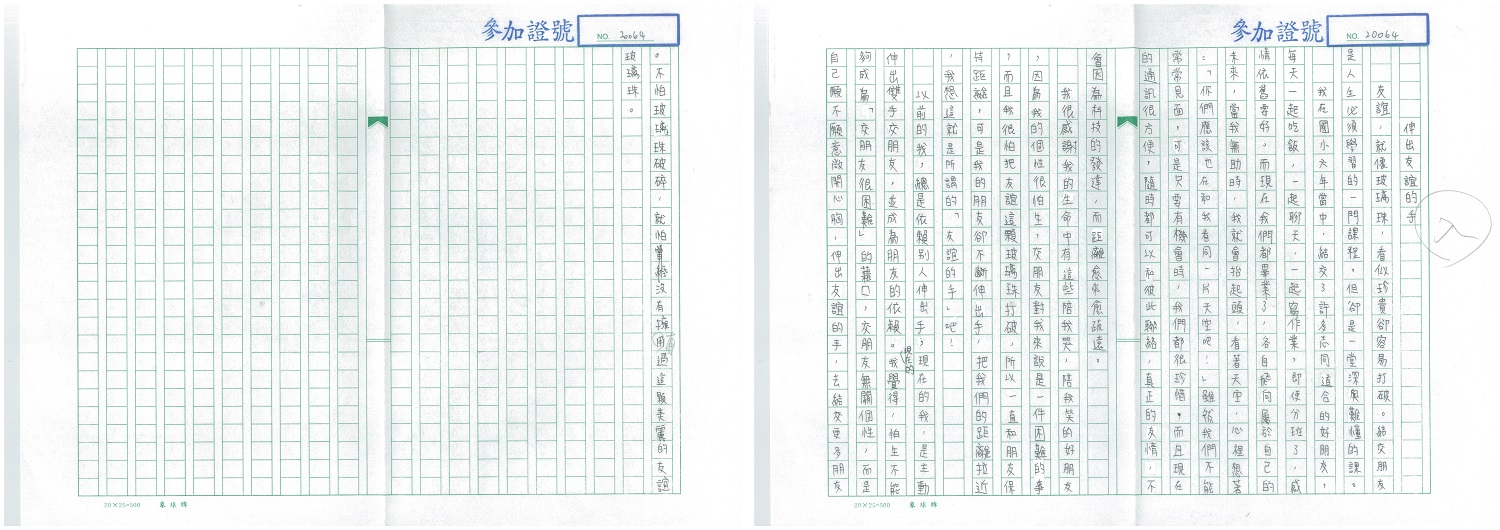 參加證號
NO. 20064
伸出友誼的手
友誼，就像玻璃珠，看似珍貴卻容易打破。結交朋友
是人生必須學習的一門課程，但卻是一堂深奧難懂的課。
我在國小六年當中，結交了許多志同道合的好朋友，
每天一起吃飯，一起聊天，一起寫作業，即使分班了，感
情依舊要好，而現在我們都畢業了，各自邁向屬於自己的
未來，當我無助時，我就會抬起頭，看著天空，心裡想著
：「你們應該也在和我看同一片天空吧！」雖然我們不能
常常見面，可是只要有機會時，我們都很珍惜，而且現在
的通訊很方便，隨時都可以和彼此聯絡，真正的友情，不
會因為科技的發達，而距離愈來愈疏遠。
我很感謝我的生命中有這些陪我哭，陪我笑的好朋友
，因為我的個性很怕生，交朋友對我來說是一件困難的事
，而且我很怕把友誼這顆玻璃珠打破，所以一直和朋友保
持距離，可是我的朋友卻不斷伸出手，把我們的距離拉近
，我想這就是所謂的「友誼的手」吧！
以前的我，總是依賴別人伸出手，現在的我，是主動
伸出雙手交朋友，並成為朋友的依賴。現在的我覺得，怕生不能
夠成為「交朋友很困難」的藉口，交朋友無關個性，而是
自己願不願意敞開心胸，伸出友誼的手，去結交更多朋友
20×25=500 象球牌
參加證號
NO. 20064
。不怕玻璃珠破碎，就怕曾經沒有擁有過這顆美麗的友誼
玻璃珠。
20×25=500 象球牌